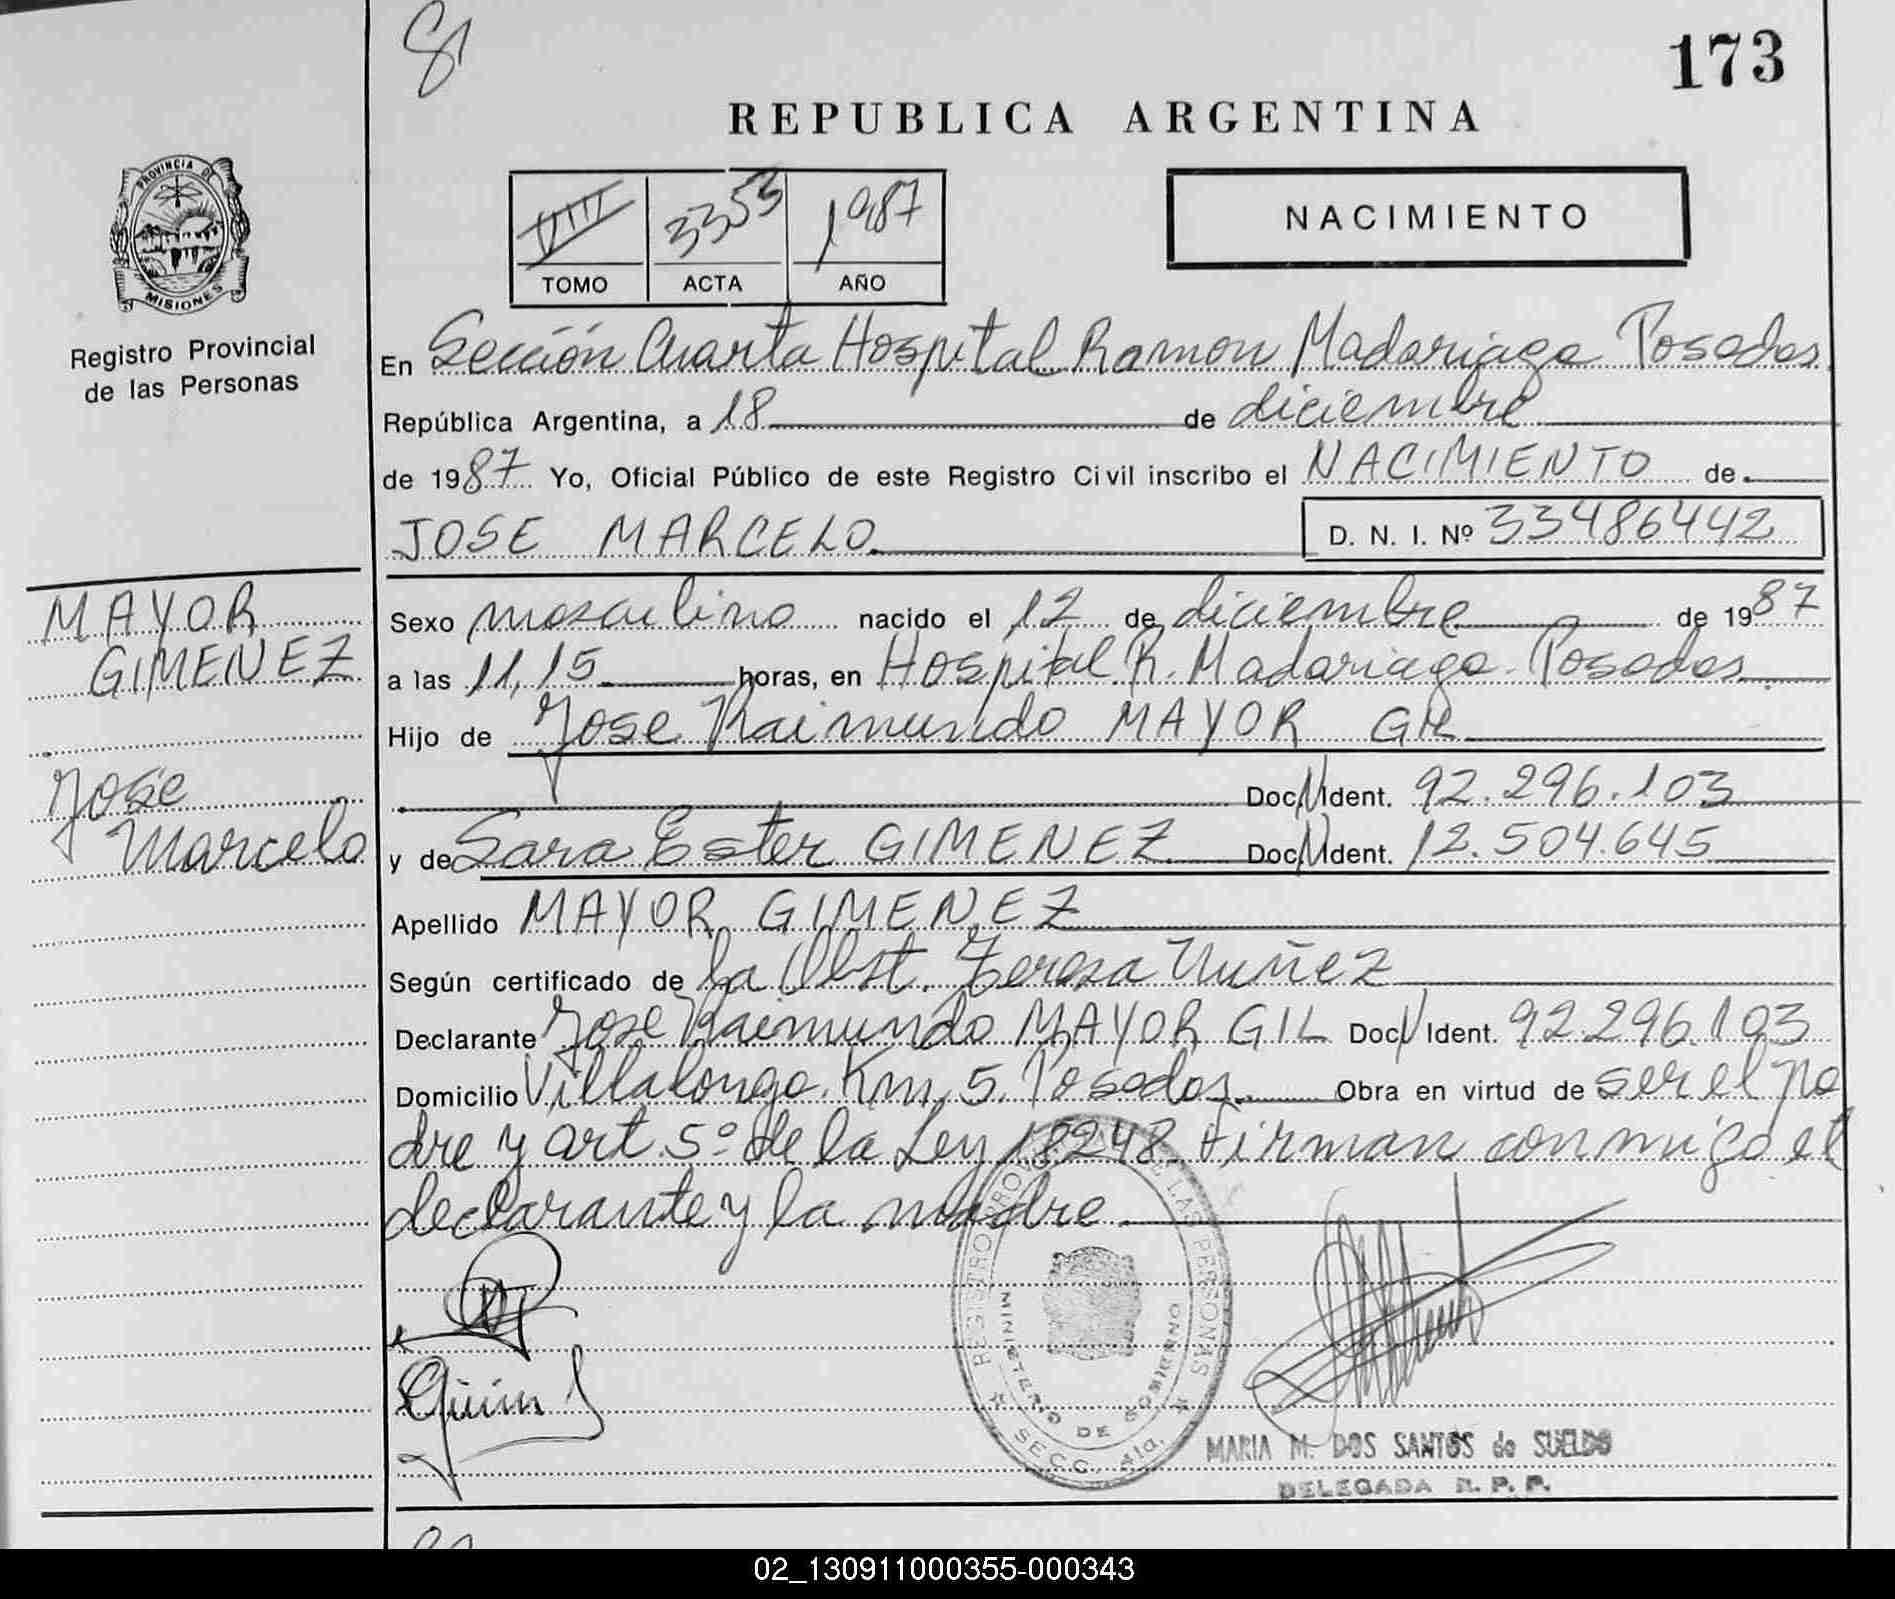 81
173
REPUBLICA ARGENTINA
PROVINCIA DE
MISIONES
Registro Provincial
de las Personas
VIII 3353 1987
TOMO ACTA AÑO
NACIMIENTO
En Sección Cuarta Hospital Ramon Madariaga Posadas
República Argentina, a 18 de diciembre
de 1987 Yo, Oficial Público de este Registro Civil inscribo el NACIMIENTO de
JOSE MARCELO D. N. I. Nº 33486442
MAYOR
GIMENEZ
José
Marcelo
Sexo masculino nacido el 12 de diciembre de 1987
a las 11,15 horas, en Hospital R. Madariaga. Posadas
Hijo de Jose Raimundo MAYOR GIL
Doc. Ident. 92.296.103
y de Sara Ester GIMENEZ Doc. Ident. 12.504.645
Apellido MAYOR GIMENEZ
Según certificado de la Obst. Teresa Nuñez
Declarante Jose Raimundo MAYOR GIL Doc. Ident. 92.296.103
Domicilio Villalonga. Km. 5. Posadas Obra en virtud de ser el pa
dre y art. 5º de la Ley 18248. Firman conmigo el
declarante y la madre
REGISTRO PROVINCIAL DE LAS PERSONAS
MINISTERIO DE GOBIERNO
SECC. 4ta.
MARIA M. DOS SANTOS de SUELDO
DELEGADA R. P. P.
02_130911000355-000343